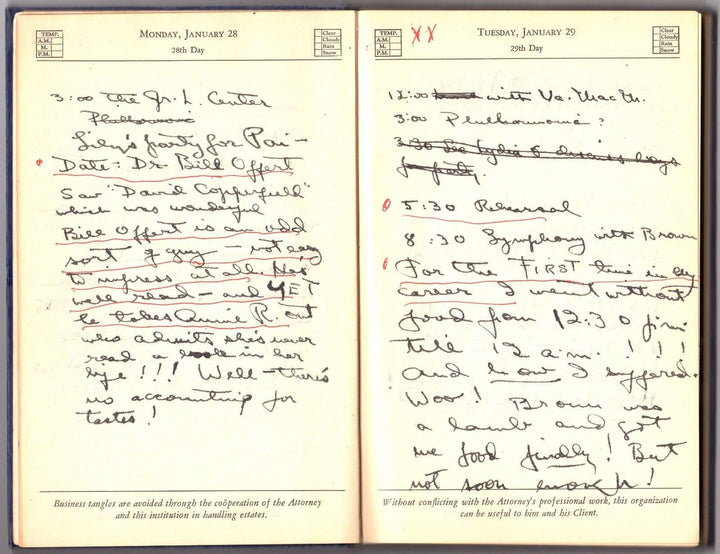 TEMP.
A.M.
M.
P.M.
MONDAY, JANUARY 28
28th Day
Clear
Cloudy
Rain
Snow
3:00 The Jr. L. Center
Philharmonic
Lily's party for Pai-
Date: Dr. Bill Offert
Saw "David Copperfield"
which was wonderful
Bill Offert is an odd
sort of guy – not easy
to impress at all. He's
well read – and YET
he takes Annie R. out
who admits she's never
read a book in her
life!!! Well – there's
no accounting for
tastes!
Business tangles are avoided through the coöperation of the Attorney
and this institution in handling estates.
TEMP.
A.M.
M.
P.M.
XX
TUESDAY, JANUARY 29
29th Day
Clear
Cloudy
Rain
Snow
12:00 with Va. MacM.
3:00 Philharmonic?
3:30 See Lydia & discuss
for party.
5:30 Rehearsal
8:30 Symphony with Brown
For the FIRST time in my
career I went without
food from 12:30 p.m.
till 12 a.m. !!!
And how I suffered.
Woo! Brown was
a lamb and got
me food finally! But
not soon enough!
Without conflicting with the Attorney's professional work, this organization
can be useful to him and his Client.